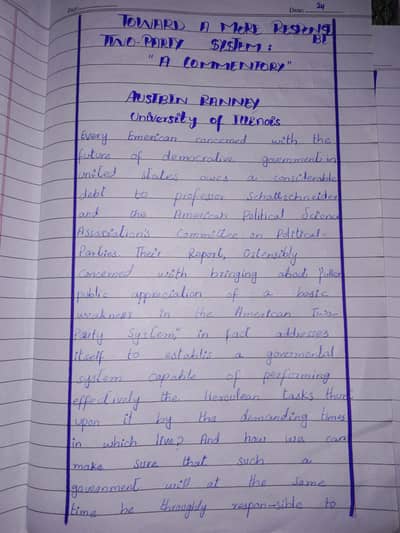 Date: 24
TOWARD A MORE RESPONSI
BLE
TWO-PARTY SYSTEM:
"A COMMENTORY"
AUSTBIN RANNEY
University of Illenois
Every Emerican concerned with the
future of democrative government in
united states owes a considerable
debt to professor Schattschneider
and the American Political Science
Association's Committee on Political-
Parties. Their Report, Ostensibly
Concerned with bringing about fuller
public appreciation of a basic
weakness in the American Two-
Party System," in fact addresses
itself to establis a govermental
system capable of performing
effectively the Herculean tasks thrust
upon it by the demanding times
in which live? And how we can
make sure that such a
government will at the same
time be throughly respon-sible to